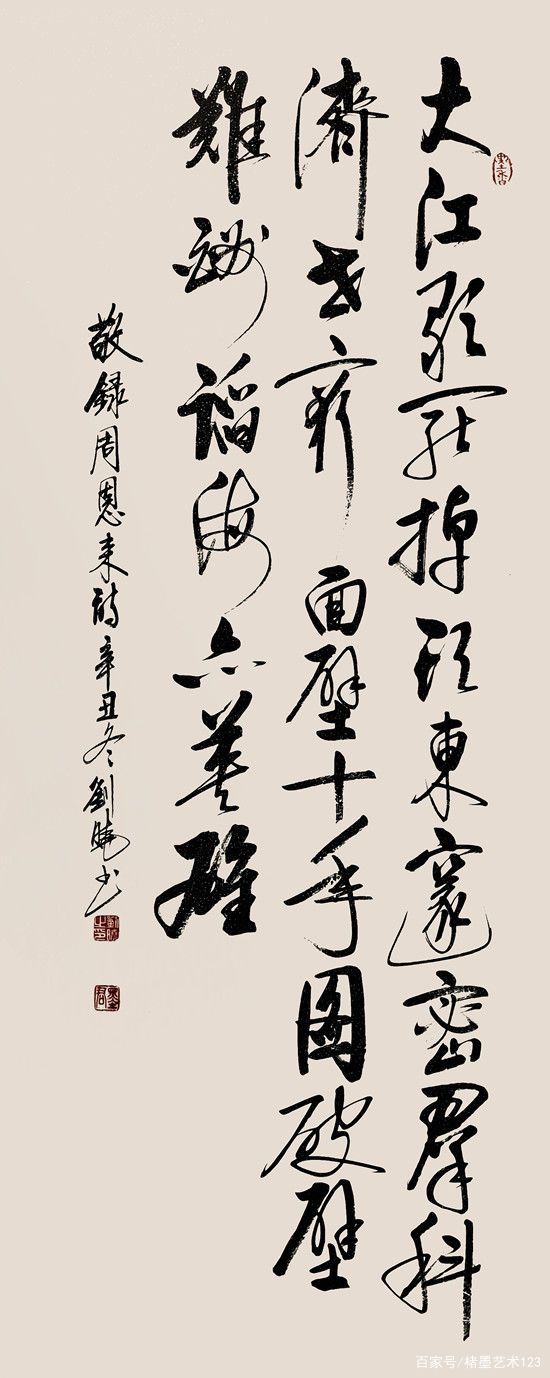 大江歌罷掉頭東邃密羣科
濟世窮面壁十年图破壁
難酬蹈海亦英雄
敬録周恩来詩辛丑冬劉曉书
百家号/楮墨艺术123